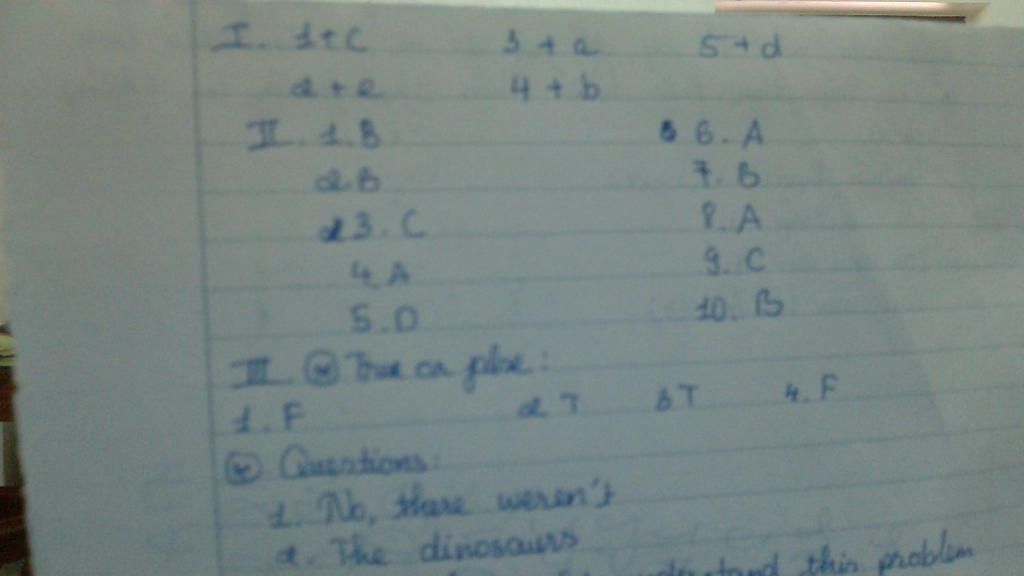 I. 1+c 3 + a 5+d
2 + e 4 + b
II. 1. B 6. A
2. B 7. B
3. C 8. A
4. A 9. C
5. D 10. B
III * True or false:
1. F 2 T 3 T 4. F
* Questions:
1. No, there weren't
2. The dinosaurs
understand this problem